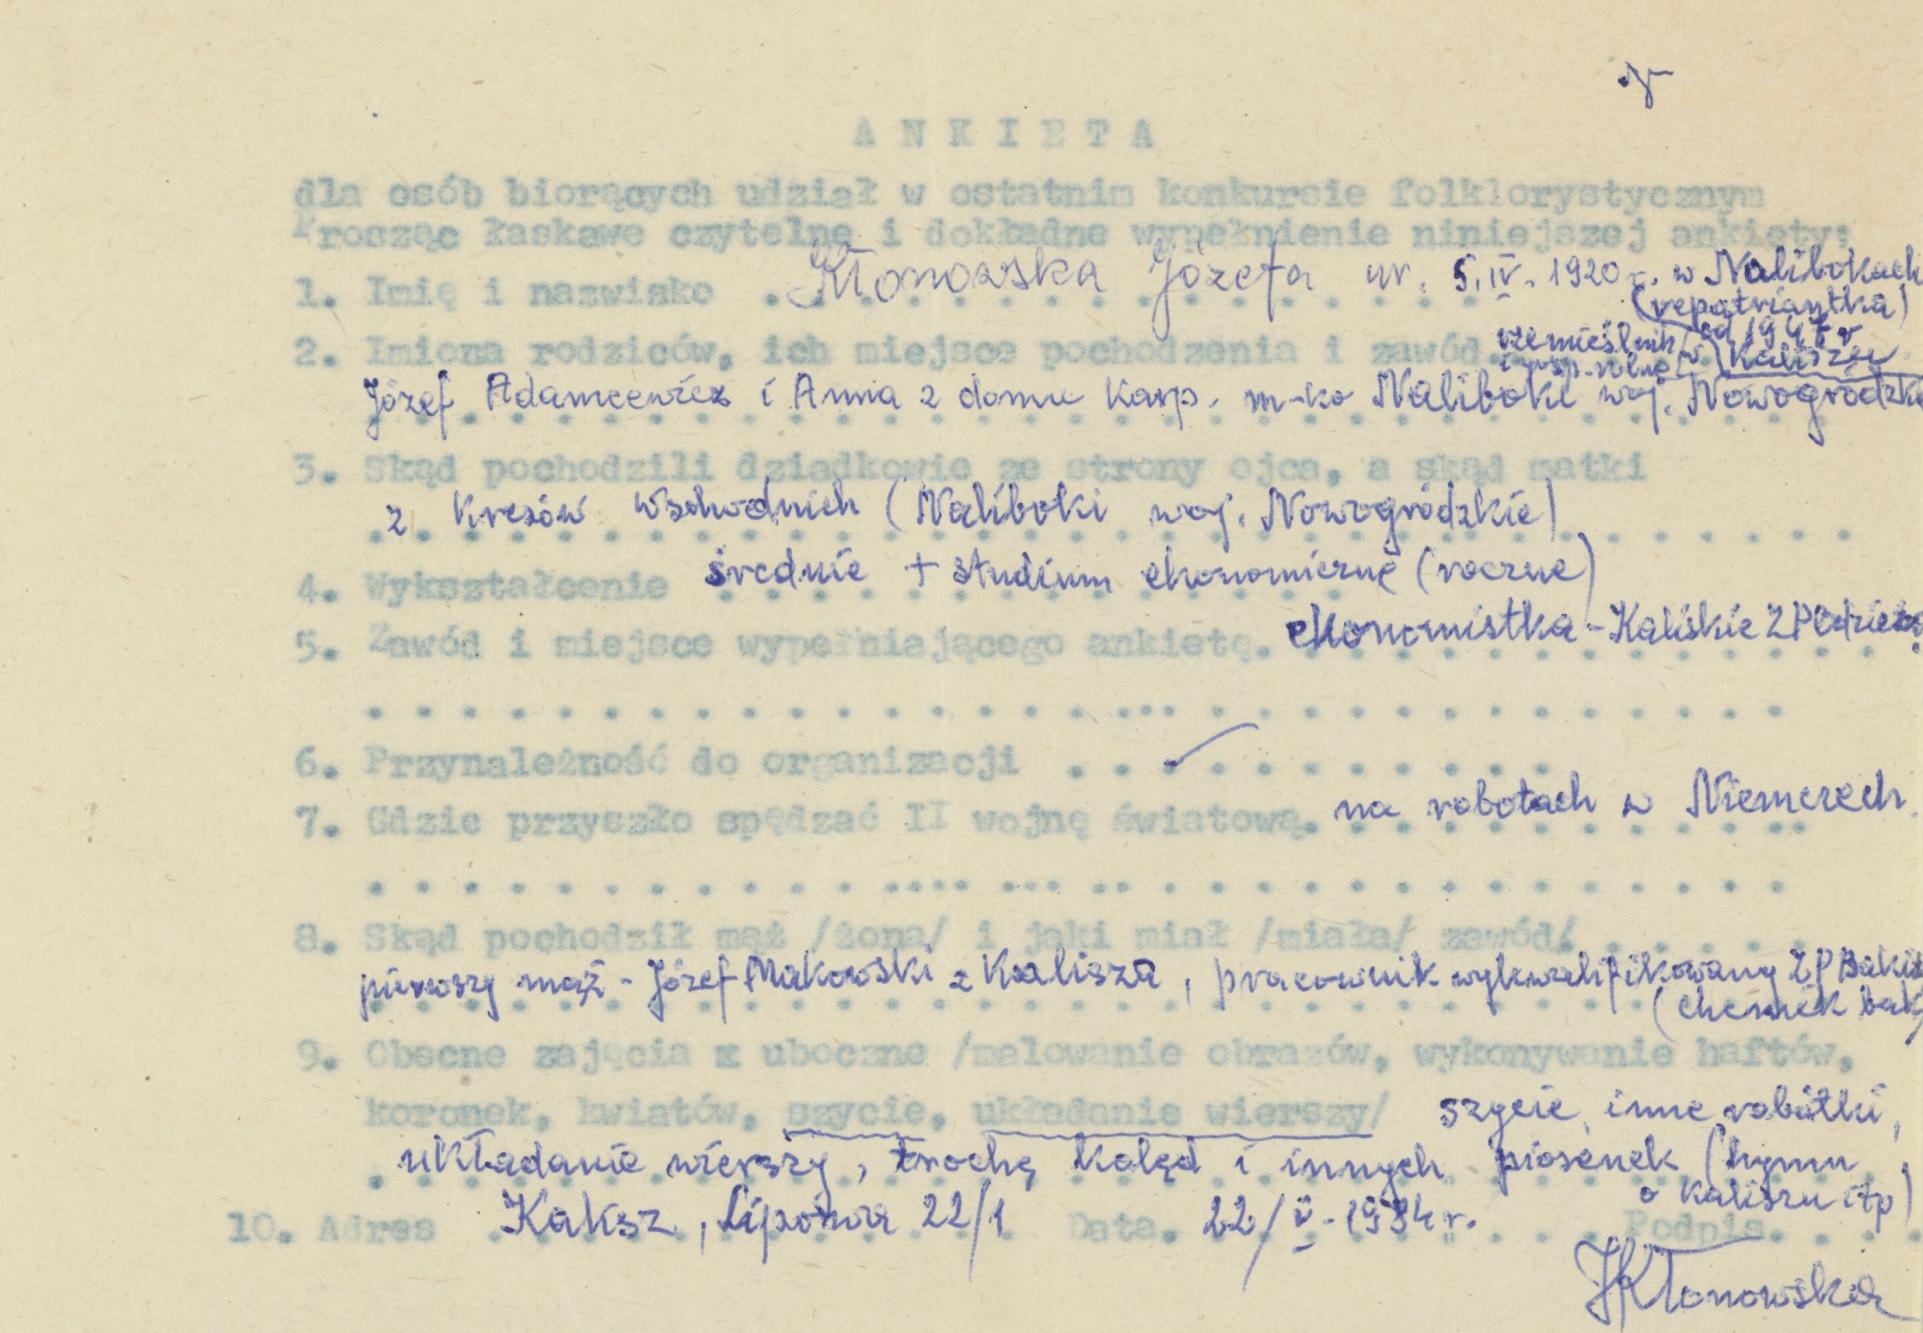 A N K I E T A
dla osób biorących udział w ostatnim konkursie folklorystycznym
Prosząc łaskawe czytelne i dokładne wypełnienie niniejszej ankiety:
1. Imię i nazwisko Kłonowska Józefa ur. 5.IV.1920 r. w Nalibokach
(repatriantka)
od 1947 r
2. Imiona rodziców, ich miejsce pochodzenia i zawód. rzemieślnik w Kaliszu
Józef Adamcewicz i Anna z domu Karp. m-ko Naliboki woj. Nowogródzkie
3. Skąd pochodzili dziadkowie ze strony ojca, a skąd matki
z Kresów Wschodnich (Naliboki woj. Nowogródzkie)
4. Wykształcenie średnie + studium ekonomiczne (roczne)
5. Zawód i miejsce wypełniającego ankietę. ekonomistka - Kaliskie
6. Przynależność do organizacji
7. Gdzie przyszło spędzać II wojnę światową. na robotach w Niemczech.
8. Skąd pochodził mąż /żona/ i jaki miał /miała/ zawód/
pierwszy mąż - Józef Makowski z Kalisza, pracownik wykwalifikowany ZP
(chemik
9. Obecne zajęcia x uboczne /malowanie obrazów, wykonywanie haftów,
koronek, kwiatów, szycie, układanie wierszy/ szycie, inne robótki,
układanie wierszy, trochę kolęd i innych piosenek (hymn
o Kaliszu itp)
10. Adres Kalisz, Lipowa 22/1 Data. 22/V-1984 r. Podpis.
JKłonowska